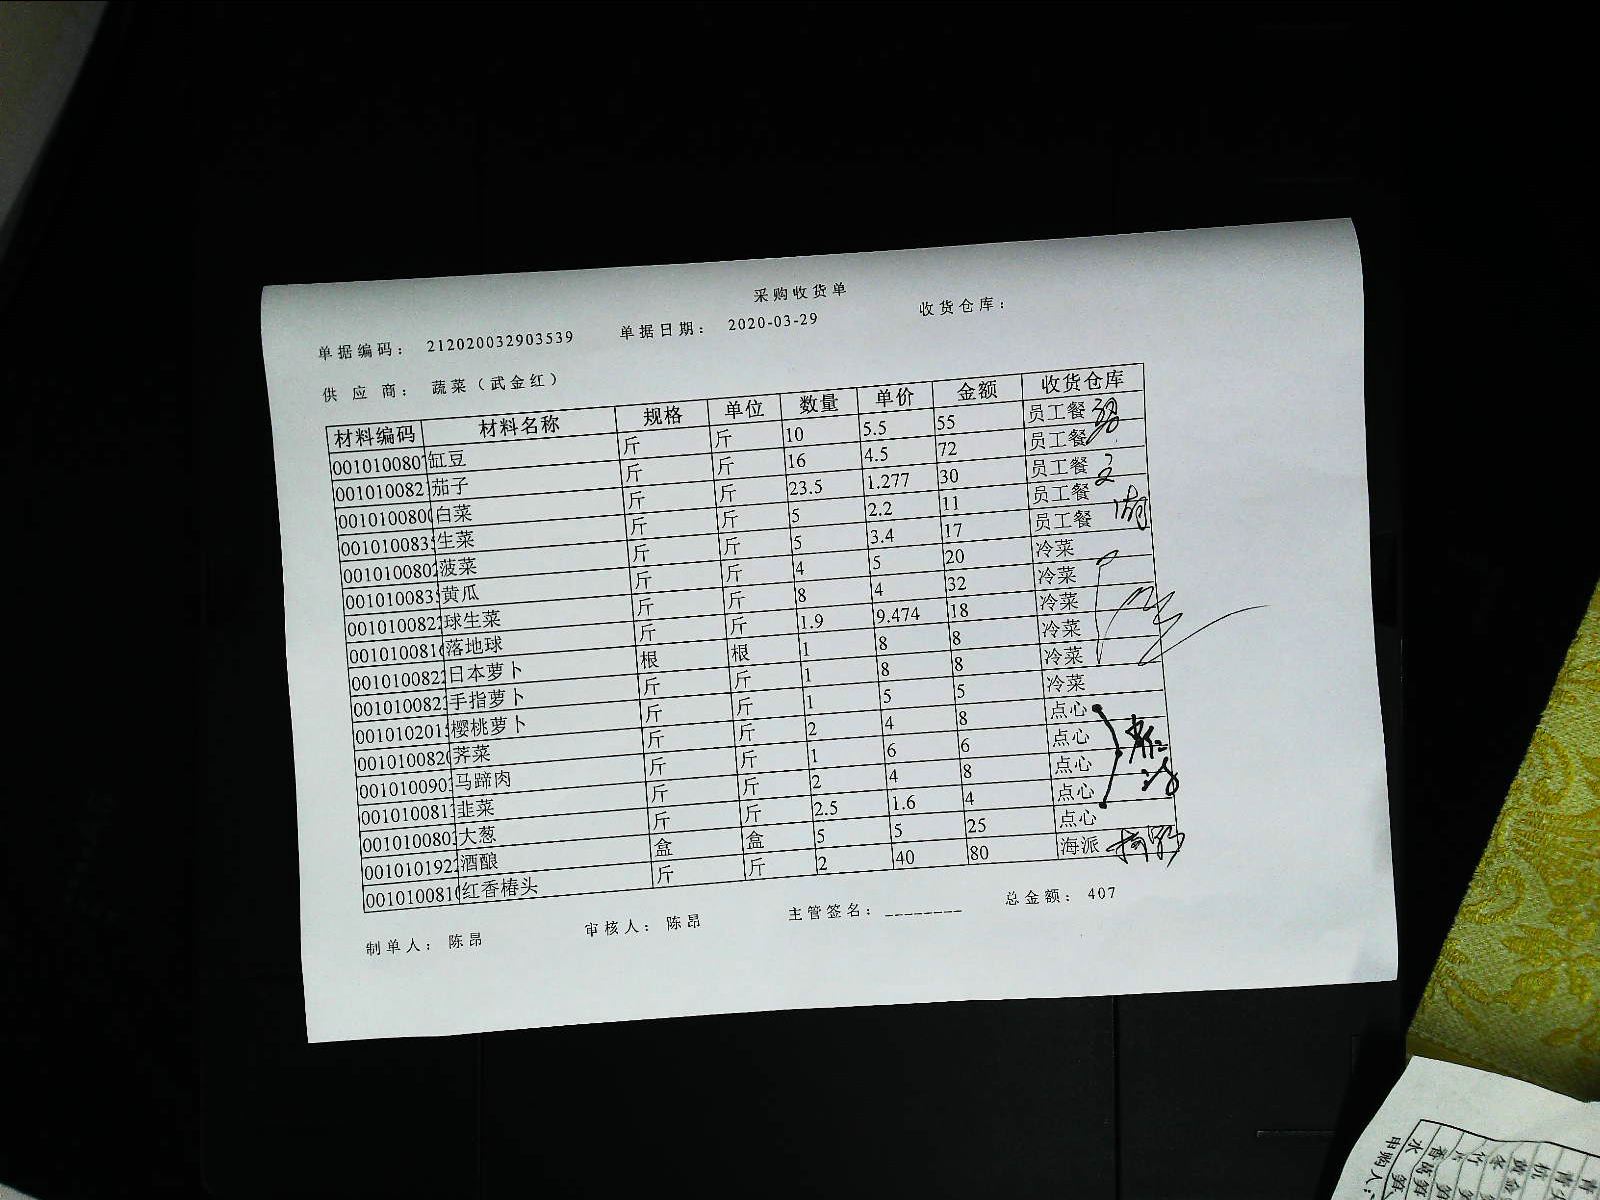 采购收货单
单据编码： 212020032903539 单据日期： 2020-03-29 收货仓库：
供 应 商： 蔬菜（武金红）
材料编码 材料名称 规格 单位 数量 单价 金额 收货仓库
001010080 缸豆 斤 斤 10 5.5 55 员工餐
001010082 茄子 斤 斤 16 4.5 72 员工餐
001010080 白菜 斤 斤 23.5 1.277 30 员工餐
001010083 生菜 斤 斤 5 2.2 11 员工餐
001010080 菠菜 斤 斤 5 3.4 17 员工餐
001010083 黄瓜 斤 斤 4 5 20 冷菜
001010082 球生菜 斤 斤 8 4 32 冷菜
001010081 落地球 斤 斤 1.9 9.474 18 冷菜
001010082 日本萝卜 根 根 1 8 8 冷菜
001010082 手指萝卜 斤 斤 1 8 8 冷菜
001010201 樱桃萝卜 斤 斤 1 5 5 冷菜
001010082 荠菜 斤 斤 2 4 8 点心
001010090 马蹄肉 斤 斤 1 6 6 点心
001010081 韭菜 斤 斤 2 4 8 点心
001010080 大葱 斤 斤 2.5 1.6 4 点心
001010192 酒酿 盒 盒 5 5 25 点心
001010081 红香椿头 斤 斤 2 40 80 海派
制单人： 陈昂 审核人： 陈昂 主管签名：________ 总金额： 407
申购人：